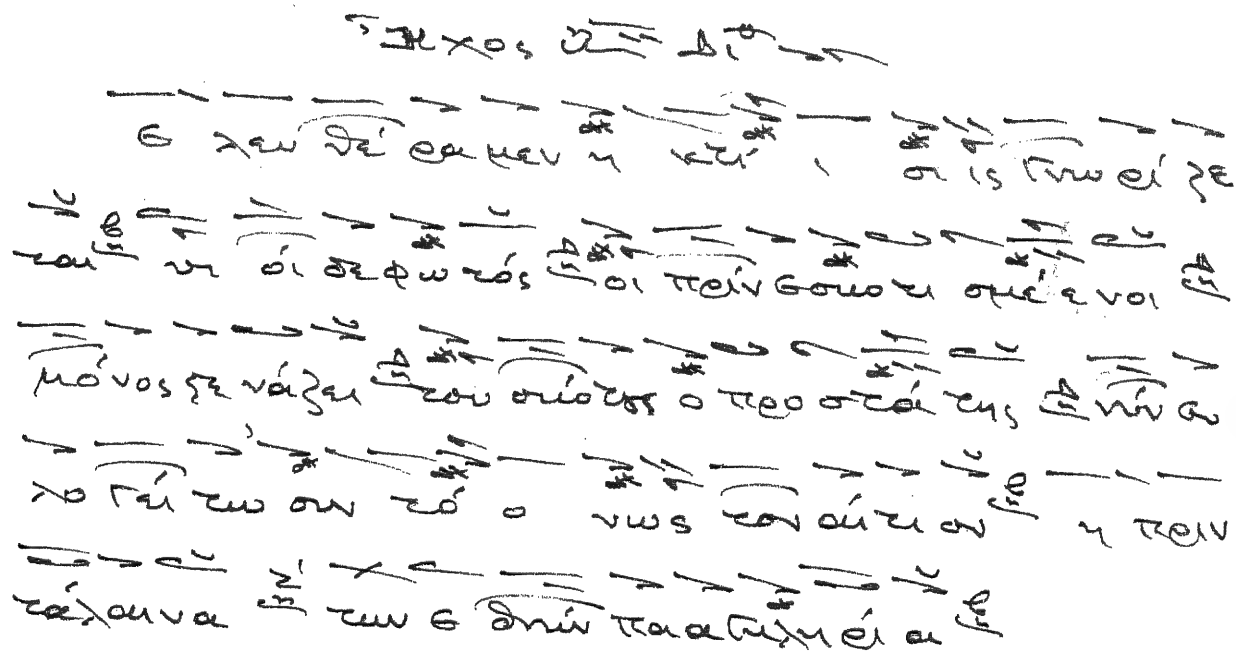 Ἦχος Δι
Ε λευ θέ ρα μεν η κτί ι σις Γνω ρί ζε
ται υι οι δε φω τός οι πρίν εσκοτι σμέ ε νοι
μόνος στε νάζει του σκότους ο προ στά της νύν ευ
λο Γεί τω συν τό ο νως τον αίτιον η πριν
τάλαινα των ε θνών Παα Γκλη ρί α